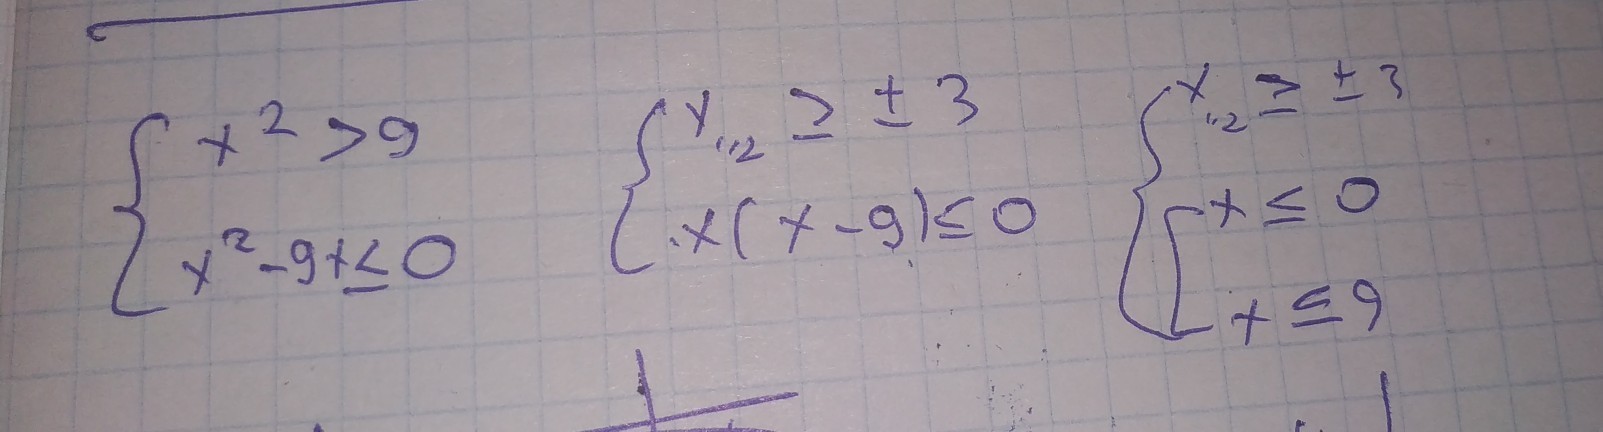 x² > 9
x² - 9x ≤ 0
x₁,₂ ≥ ± 3
x(x - 9) ≤ 0
x₁,₂ ≥ ± 3
x ≤ 0
x ≤ 9